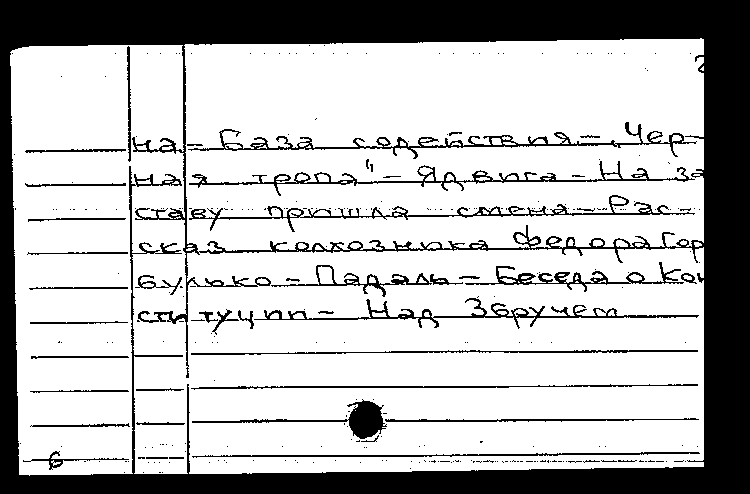 2
на – База содействия – „Чер-
ная тропа“ – Ядвига – На за
ставу пришла смена – Рас-
сказ колхозника Федора Гор
булько – Падаль – Беседа о Кон
ституции – Над Збручем
6